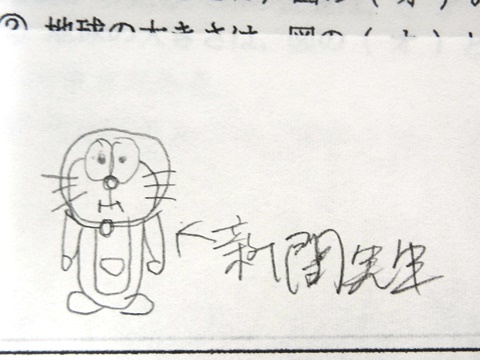 ② 地球の大きさは、図の（ オ ）と
←新間先生